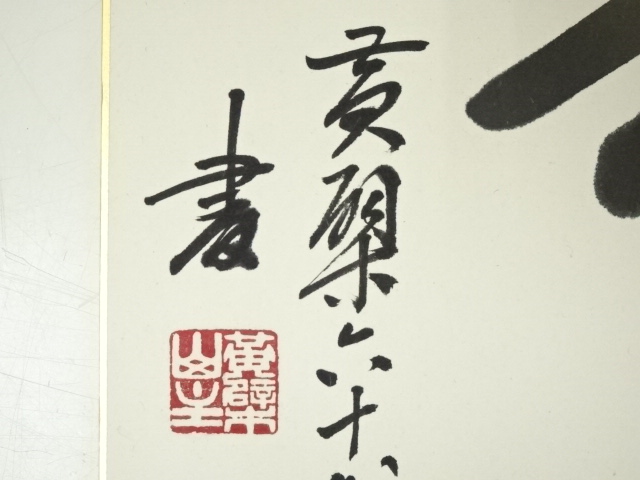 黄檗六十
書
黄檗山主